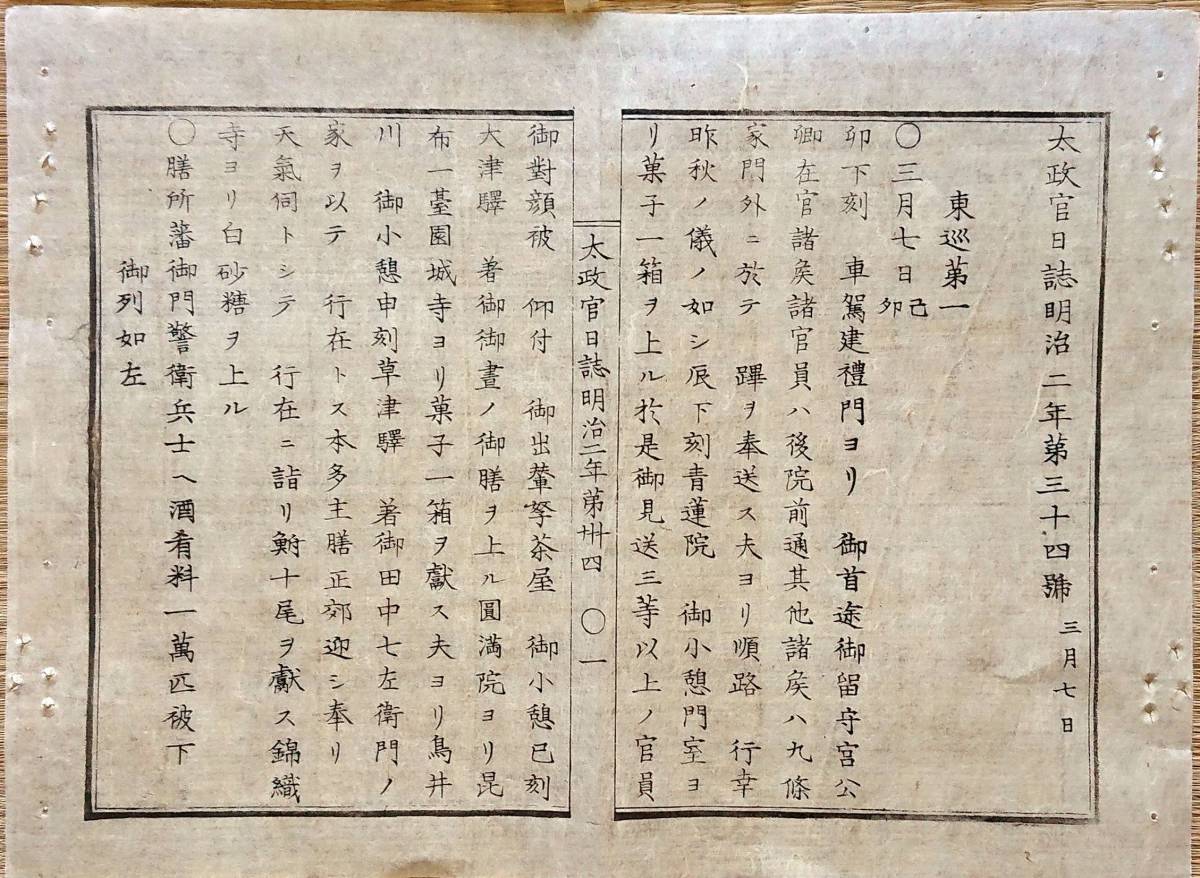 太政官日誌明治二年第三十四號 三月七日
東巡第一
〇三月七日己卯
卯下刻 車駕建禮門ヨリ 御首途御留守宮公
卿在官諸矦諸官員ハ後院前通其他諸矦ハ九條
家門外ニ於テ 蹕ヲ奉送ス夫ヨリ順路 行幸
昨秋ノ儀ノ如シ辰下刻青蓮院 御小憩門室ヨ
リ菓子一箱ヲ上ル於是御見送三等以上ノ官員
太政官日誌明治二年第卅四 〇一
御對顔被 仰付 御出輦拏茶屋 御小憩巳刻
大津驛 著御御晝ノ御膳ヲ上ル圓満院ヨリ昆
布一臺園城寺ヨリ菓子一箱ヲ獻ス夫ヨリ鳥井
川 御小憩申刻草津驛 著御田中七左衛門ノ
家ヲ以テ 行在トス本多主膳正郊迎シ奉リ
天氣伺トシテ 行在ニ詣リ鮒十尾ヲ獻ス錦織
寺ヨリ白砂糖ヲ上ル
〇膳所藩御門警衛兵士ヘ酒肴料一萬匹被下
御列如左